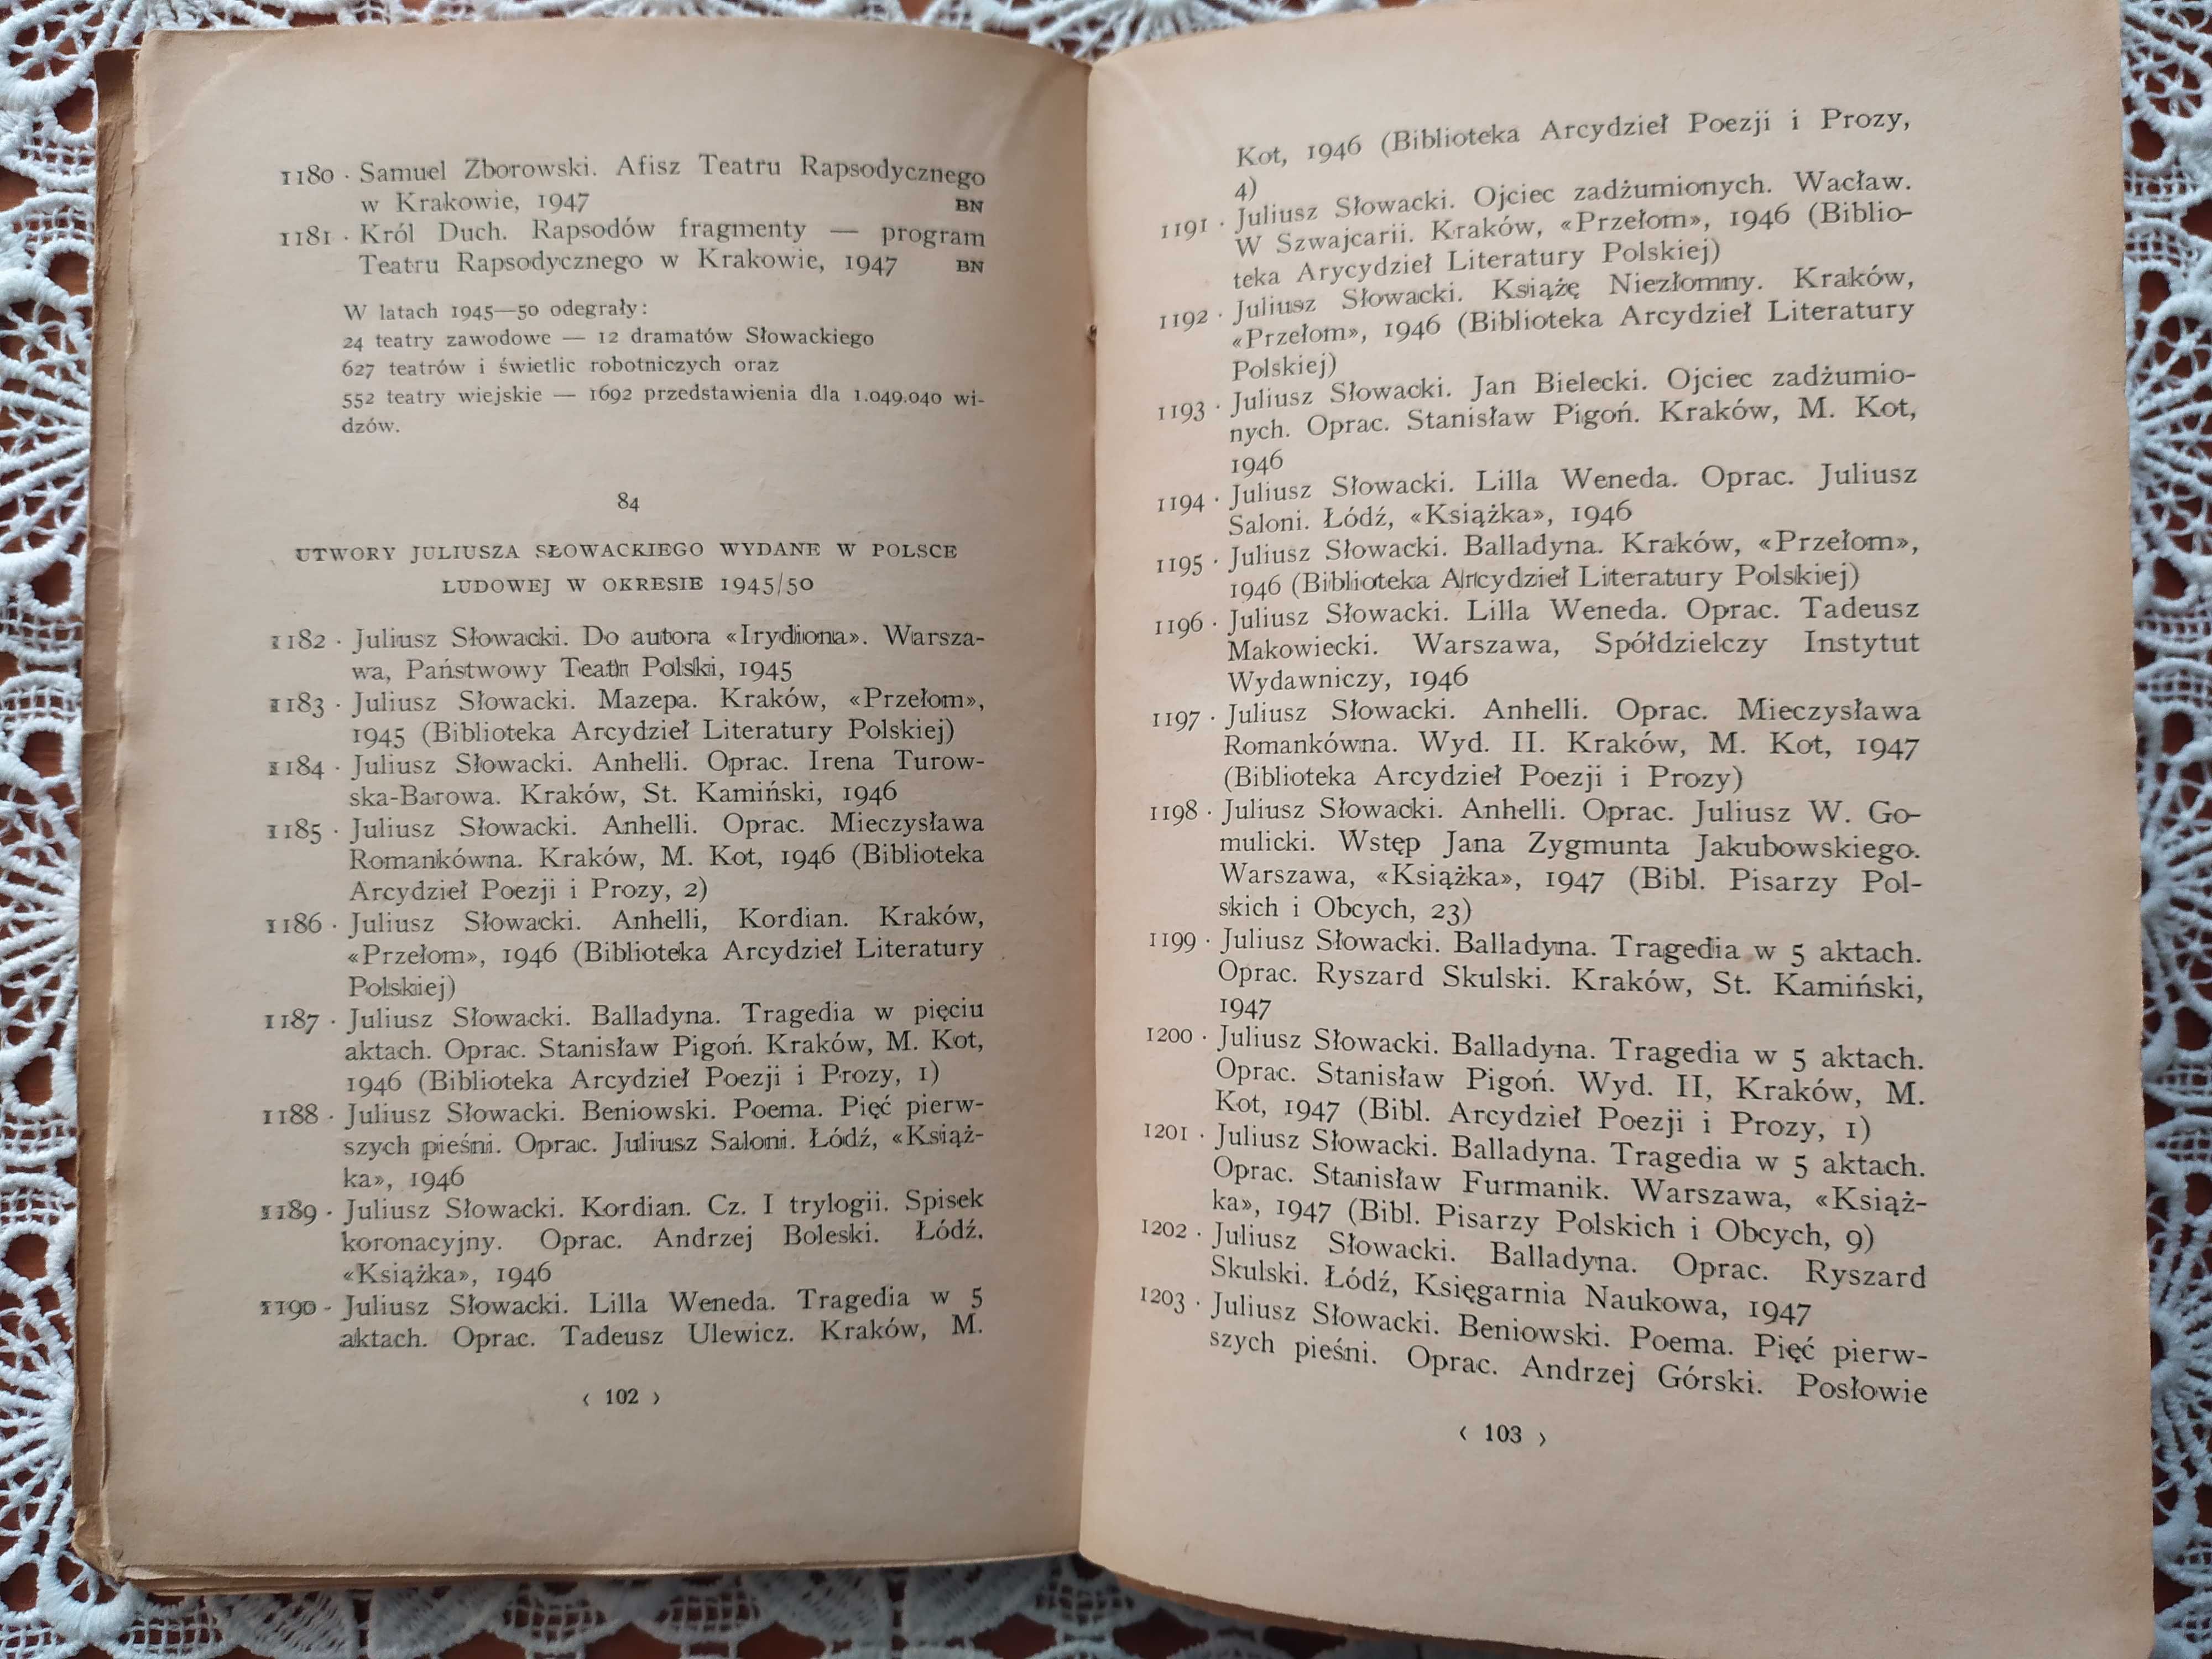 1180 · Samuel Zborowski. Afisz Teatru Rapsodycznego
w Krakowie, 1947 BN
1181 · Król Duch. Rapsodów fragmenty — program
Teatru Rapsodycznego w Krakowie, 1947 BN
W latach 1945—50 odegrały:
24 teatry zawodowe — 12 dramatów Słowackiego
627 teatrów i świetlic robotniczych oraz
552 teatry wiejskie — 1692 przedstawienia dla 1.049.040 wi-
dzów.
84
UTWORY JULIUSZA SŁOWACKIEGO WYDANE W POLSCE
LUDOWEJ W OKRESIE 1945/50
1182 · Juliusz Słowacki. Do autora «Irydiona». Warsza-
wa, Państwowy Teatr Polski, 1945
1183 · Juliusz Słowacki. Mazepa. Kraków, «Przełom»,
1945 (Biblioteka Arcydzieł Literatury Polskiej)
1184 · Juliusz Słowacki. Anhelli. Oprac. Irena Turow-
ska-Barowa. Kraków, St. Kamiński, 1946
1185 · Juliusz Słowacki. Anhelli. Oprac. Mieczysława
Romankówna. Kraków, M. Kot, 1946 (Biblioteka
Arcydzieł Poezji i Prozy, 2)
1186 · Juliusz Słowacki. Anhelli, Kordian. Kraków,
«Przełom», 1946 (Biblioteka Arcydzieł Literatury
Polskiej)
1187 · Juliusz Słowacki. Balladyna. Tragedia w pięciu
aktach. Oprac. Stanisław Pigoń. Kraków, M. Kot,
1946 (Biblioteka Arcydzieł Poezji i Prozy, 1)
1188 · Juliusz Słowacki. Beniowski. Poema. Pięć pierw-
szych pieśni. Oprac. Juliusz Saloni. Łódź, «Książ-
ka», 1946
1189 · Juliusz Słowacki. Kordian. Cz. I trylogii. Spisek
koronacyjny. Oprac. Andrzej Boleski. Łódź.
«Książka», 1946
1190 · Juliusz Słowacki. Lilla Weneda. Tragedia w 5
aktach. Oprac. Tadeusz Ulewicz. Kraków, M.
‹ 102 ›
Kot, 1946 (Biblioteka Arcydzieł Poezji i Prozy,
4)
1191 · Juliusz Słowacki. Ojciec zadżumionych. Wacław.
W Szwajcarii. Kraków, «Przełom», 1946 (Biblio-
teka Arycydzieł Literatury Polskiej)
1192 · Juliusz Słowacki. Książę Niezłomny. Kraków,
«Przełom», 1946 (Biblioteka Arcydzieł Literatury
Polskiej)
1193 · Juliusz Słowacki. Jan Bielecki. Ojciec zadżumio-
nych. Oprac. Stanisław Pigoń. Kraków, M. Kot,
1946
1194 · Juliusz Słowacki. Lilla Weneda. Oprac. Juliusz
Saloni. Łódź, «Książka», 1946
1195 · Juliusz Słowacki. Balladyna. Kraków, «Przełom»,
1946 (Biblioteka Arcydzieł Literatury Polskiej)
1196 · Juliusz Słowacki. Lilla Weneda. Oprac. Tadeusz
Makowiecki. Warszawa, Spółdzielczy Instytut
Wydawniczy, 1946
1197 · Juliusz Słowacki. Anhelli. Oprac. Mieczysława
Romankówna. Wyd. II. Kraków, M. Kot, 1947
(Biblioteka Arcydzieł Poezji i Prozy)
1198 · Juliusz Słowacki. Anhelli. Oprac. Juliusz W. Go-
mulicki. Wstęp Jana Zygmunta Jakubowskiego.
Warszawa, «Książka», 1947 (Bibl. Pisarzy Pol-
skich i Obcych, 23)
1199 · Juliusz Słowacki. Balladyna. Tragedia w 5 aktach.
Oprac. Ryszard Skulski. Kraków, St. Kamiński,
1947
1200 · Juliusz Słowacki. Balladyna. Tragedia w 5 aktach.
Oprac. Stanisław Pigoń. Wyd. II, Kraków, M.
Kot, 1947 (Bibl. Arcydzieł Poezji i Prozy, 1)
1201 · Juliusz Słowacki. Balladyna. Tragedia w 5 aktach.
Oprac. Stanisław Furmanik. Warszawa, «Książ-
ka», 1947 (Bibl. Pisarzy Polskich i Obcych, 9)
1202 · Juliusz Słowacki. Balladyna. Oprac. Ryszard
Skulski. Łódź, Księgarnia Naukowa, 1947
1203 · Juliusz Słowacki. Beniowski. Poema. Pięć pierw-
szych pieśni. Oprac. Andrzej Górski. Posłowie
‹ 103 ›